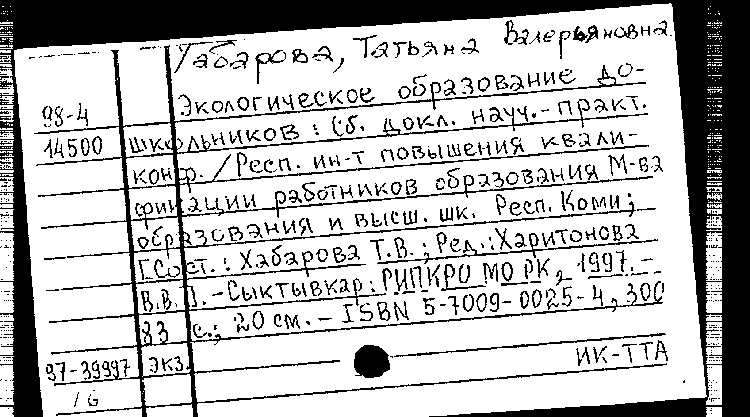 Габарова, Татьяна Валерьяновна
98-4 Экологическое образование до-
14500 школьников : Сб. докл. науч.-практ.
конф. / Респ. ин-т повышения квали-
фикации работников образования М-ва
образования и высш. шк. Респ. Коми ;
[Сост. : Хабарова Т.В. ; Ред. : Харитонова
В.В.]. - Сыктывкар : РИПКРО МО РК, 1997. -
83 с. ; 20 см. - ISBN 5-7009-0025-4, 300
97-39997 экз.
ИК-ТТА
16